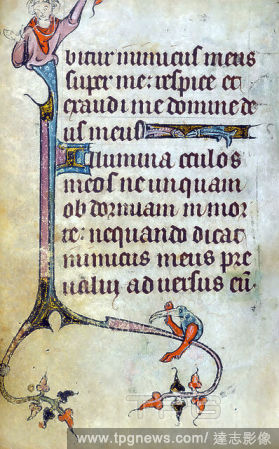 bitur inimicus meus
super me: respice et
exaudi me domine de
us meus
Illumina oculos
meos ne unquam
obdormiam in mor
te: nequando dicat
inimicus meus pre
ualui aduersus eū.
www.tpgnews.com/ 達志影像